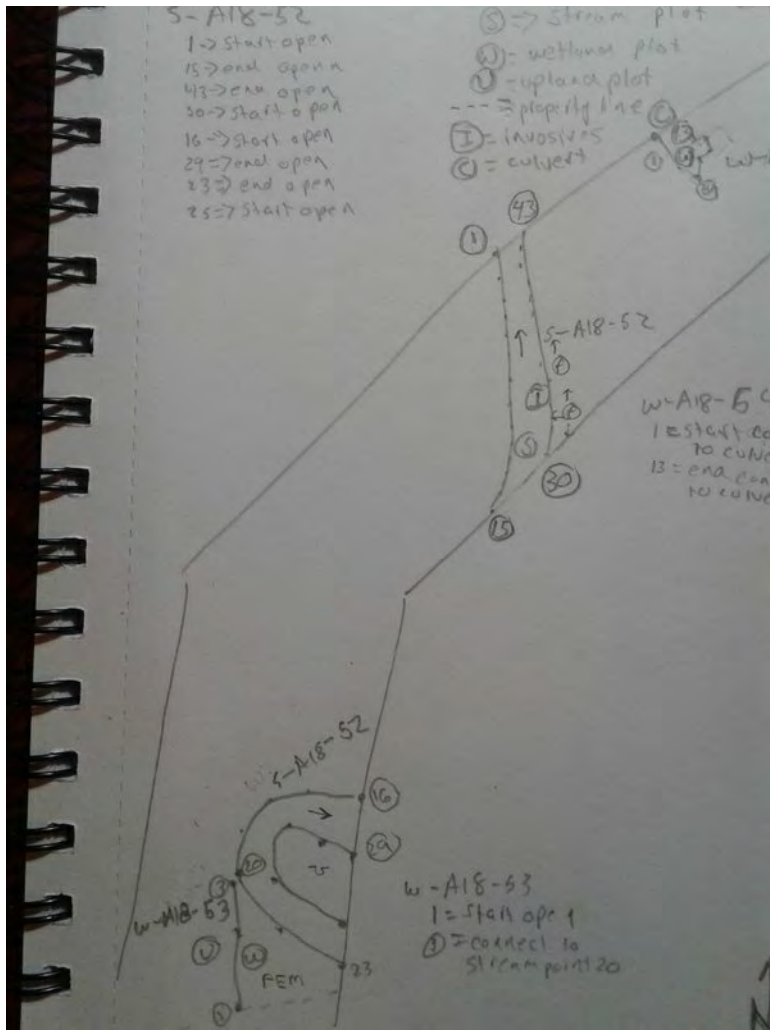 S-A18-52
1->start open
15->end openn
43->end open
30->start open
16->start open
29=>end open
23=>end open
25=>Start open
Ⓢ=> stream plot
Ⓦ- wetland plot
Ⓤ-upland plot
---=property line
Ⓘ=invasives
Ⓒ= culvert
C
13
1
W-
43
1
S-A18-52
I
S
30
15
W-A18-5
1=start
to
13=end
to
S-A18-52
16
20
29
25
3
W-A18-53
U
W
PEM
23
1
W-A18-53
1=start open
③=connect to
stream point 20
N